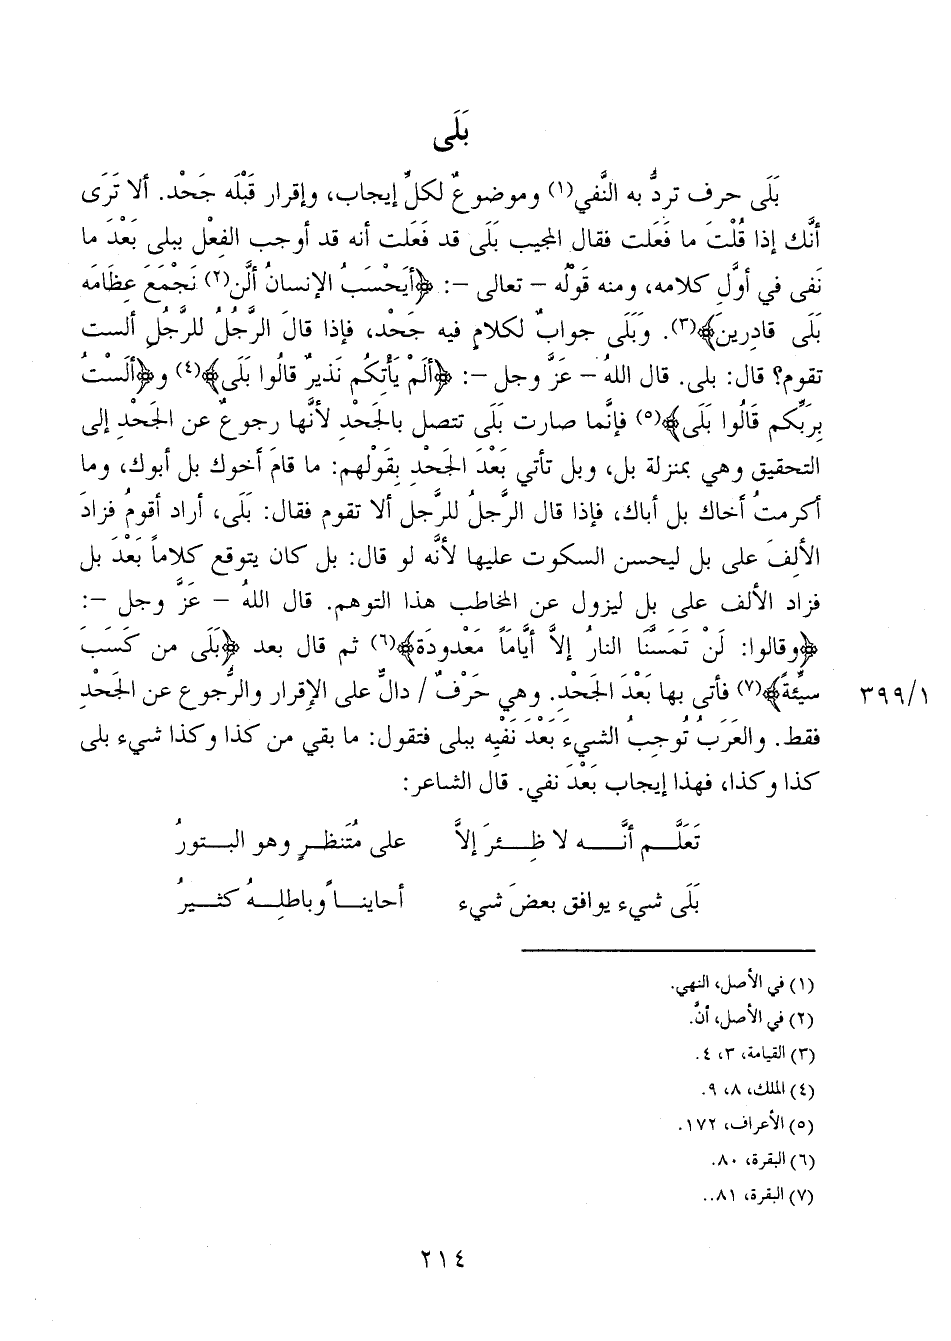 بَلَى
بَلَى حرف تردُّ به النَّفي(١) وموضوعٌ لكلِّ إيجاب، وإقرار قَبْلَه جَحْد. ألا تَرَى
أنَّك إذا قُلْتَ ما فَعَلت فقال المجيب بَلَى قد فَعَلت أنه قد أوجب الفِعْل ببلى بَعْدَ ما
نَفى في أوَّلِ كلامه، ومنه قَوْلُه – تعالى –: ﴿أيَحْسَبُ الإنسانُ ألَّن(٢) نَجْمَعَ عِظَامَه
بَلَى قادرينَ﴾(٣). وَبَلَى جوابٌ لكلامٍ فيه جَحْد، فإذا قالَ الرَّجُلُ للرَّجُلِ ألست
تقوم؟ قال: بلى. قال اللهُ – عَزَّ وجل –: ﴿ألَمْ يَأْتكُم نَذيرٌ قالُوا بَلَى﴾(٤) و﴿ألَسْتُ
بِرَبِّكم قَالُوا بَلَى﴾(٥) فإنَّما صارت بَلَى تتصل بالجَحْدِ لأنَّها رجوعٌ عن الجَحْدِ إلى
التحقيق وهي بمنزلة بل، وبل تأتي بَعْدَ الجَحْدِ بِقَوْلهم: ما قامَ أخوك بل أبوك، وما
أكرمتُ أخاك بل أباك، فإذا قال الرَّجلُ للرَّجل ألا تقوم فقال: بَلَى، أراد أقومُ فزادَ
الألِفَ على بل ليحسن السكوت عليها لأنَّه لو قال: بل كان يتوقع كلاماً بَعْدَ بل
فزاد الألف على بل ليزول عن المخاطب هذا التوهم. قال اللهُ – عَزَّ وجل –:
﴿وقالوا: لَنْ تَمَسَّنَا النارُ إلاَّ أيَّاماً مَعْدودَة﴾(٦) ثم قال بعد ﴿بَلَى من كَسَبَ
سيِّئَةً﴾(٧) فأتى بها بَعْدَ الجَحْدِ. وهي حَرْفٌ / دالٌّ على الإقرار والرُّجوع عن الجَحْدِ
٣٩٩/١
فقط. والعَرَبُ تُوجِبُ الشيءَ بَعْدَ نَفْيِه ببلى فتقول: ما بقي من كذا وكذا شيء بلى
كذا وكذا، فهذا إيجاب بَعْدَ نفي. قال الشاعر:
تَعَلَّـم أنَّـــه لا ظِـئرَ إلاَّ على مُتَنظـرٍ وهو البـتورُ
بَلَى شيء يوافق بعضَ شيء أحاينـاً وباطلِـهُ كثـيرُ
(١) في الأصل، النهي.
(٢) في الأصل، أنْ.
(٣) القيامة، ٣، ٤.
(٤) الملك، ٨، ٩.
(٥) الأعراف، ١٧٢.
(٦) البقرة، ٨٠.
(٧) البقرة، ٨١..
٢١٤